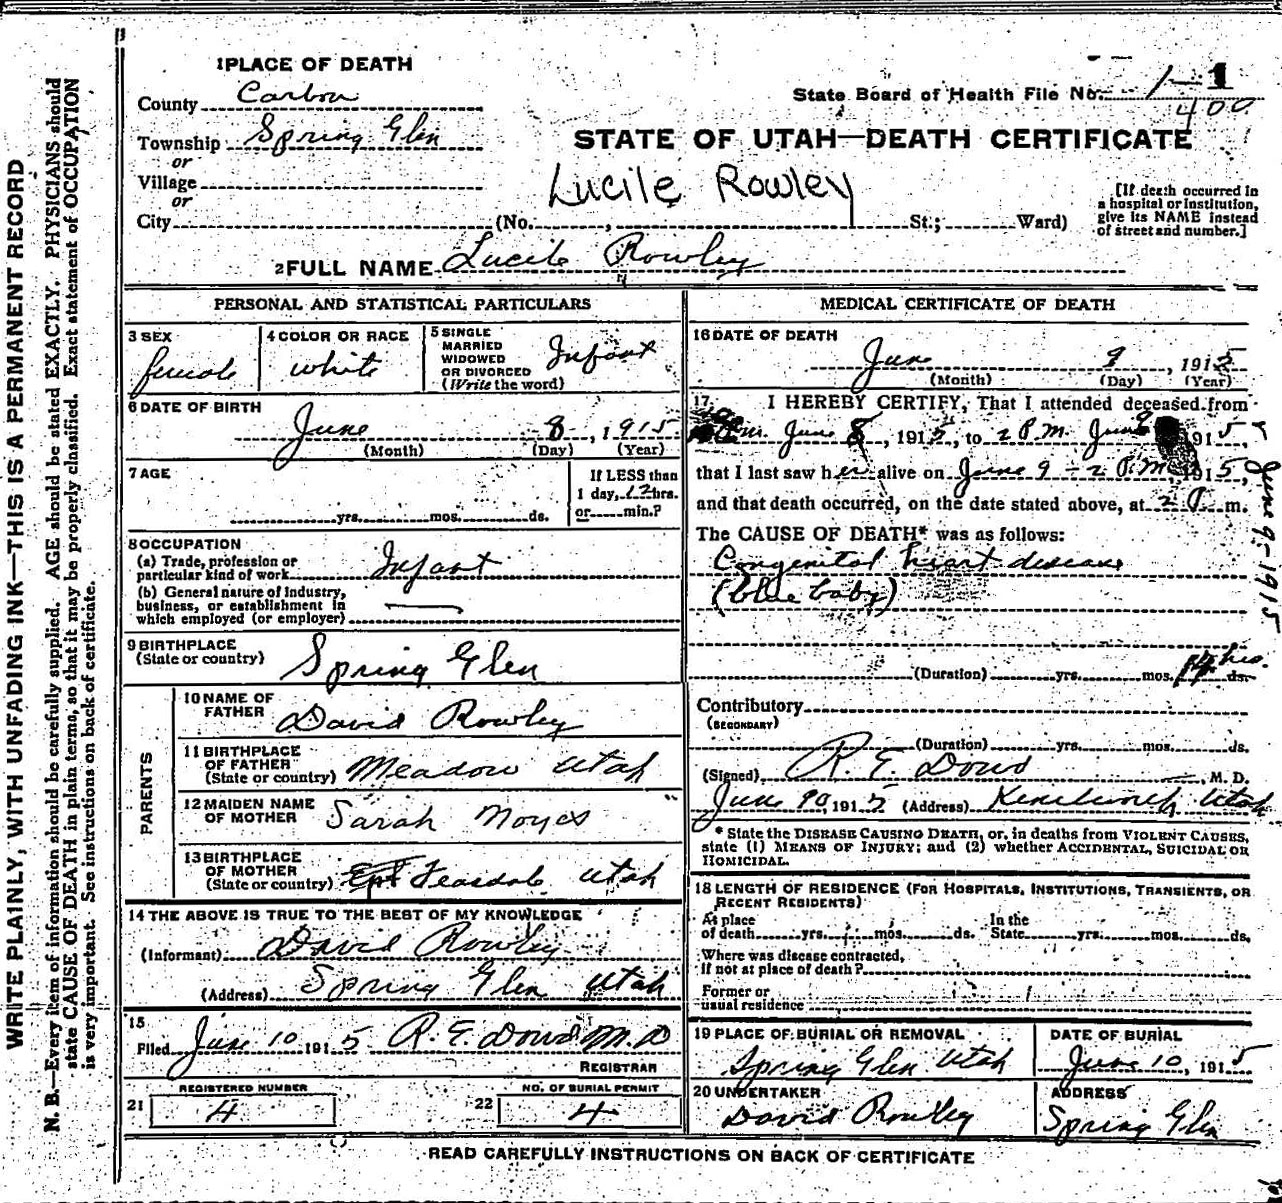 1 PLACE OF DEATH
County Carbon
State Board of Health File No. 1-1
400
Township Spring Glen
or
STATE OF UTAH—DEATH CERTIFICATE
Village
or
Lucile Rowley
City (No. , St.; Ward)
[If death occurred in
a hospital or institution,
give its NAME instead
of street and number.]
2 FULL NAME Lucile Rowley
PERSONAL AND STATISTICAL PARTICULARS
3 SEX
female
4 COLOR OR RACE
white
5 SINGLE
MARRIED
WIDOWED
OR DIVORCED
(Write the word)
Infant
6 DATE OF BIRTH
June 8, 1915
(Month) (Day) (Year)
7 AGE
yrs. mos. ds.
If LESS than
1 day, 12 hrs.
or min.?
8 OCCUPATION
(a) Trade, profession or
particular kind of work Infant
(b) General nature of industry,
business, or establishment in
which employed (or employer)
9 BIRTHPLACE
(State or country) Spring Glen
PARENTS
10 NAME OF
FATHER David Rowley
11 BIRTHPLACE
OF FATHER
(State or country) Meadow Utah
12 MAIDEN NAME
OF MOTHER Sarah Noyes
13 BIRTHPLACE
OF MOTHER
(State or country) Teasdale Utah
14 THE ABOVE IS TRUE TO THE BEST OF MY KNOWLEDGE
(Informant) David Rowley
(Address) Spring Glen Utah
15
Filed June 10 1915 R. E. Dowd M.D
REGISTRAR
REGISTERED NUMBER
21 4
NO. OF BURIAL PERMIT
22 4
MEDICAL CERTIFICATE OF DEATH
16 DATE OF DEATH
June 9, 1915
(Month) (Day) (Year)
17 I HEREBY CERTIFY, That I attended deceased from
m. June 8, 1915, to 2 P.M. June 9 1915,
that I last saw her alive on June 9 - 2 P.M. 1915,
and that death occurred, on the date stated above, at 2 P. m.
The CAUSE OF DEATH* was as follows:
Congenital heart disease
(blue baby)
(Duration) yrs. mos. ds. hrs.
Contributory
(SECONDARY)
(Duration) yrs. mos. ds.
(Signed) R. E. Dowd, M. D.
June 1915 (Address) Kenilworth Utah
* State the DISEASE CAUSING DEATH, or, in deaths from VIOLENT CAUSES,
state (1) MEANS OF INJURY; and (2) whether ACCIDENTAL, SUICIDAL OR
HOMICIDAL.
18 LENGTH OF RESIDENCE (FOR HOSPITALS, INSTITUTIONS, TRANSIENTS, OR
RECENT RESIDENTS)
At place
of death yrs. mos. ds.
In the
State yrs. mos. ds.
Where was disease contracted,
if not at place of death?
Former or
usual residence
19 PLACE OF BURIAL OR REMOVAL
Spring Glen Utah
DATE OF BURIAL
June 10, 1915
20 UNDERTAKER
David Rowley
ADDRESS
Spring Glen
READ CAREFULLY INSTRUCTIONS ON BACK OF CERTIFICATE
WRITE PLAINLY, WITH UNFADING INK—THIS IS A PERMANENT RECORD
N. B.—Every item of information should be carefully supplied. AGE should be stated EXACTLY. PHYSICIANS should
state CAUSE OF DEATH in plain terms, so that it may be properly classified. Exact statement of OCCUPATION
is very important. See instructions on back of certificate.
June 9-1915